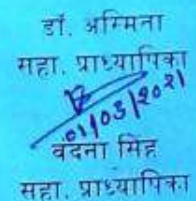 डॉ. अग्मिना
सहा. प्राध्यापिका
01/03/2021
वदना सिंह
सहा. प्राध्यापिका